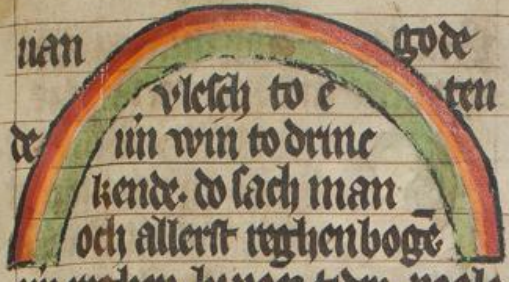 uan gode
vlesch to e ten
de un win to drinc
kende. do sach man
och allerst reghenbogē